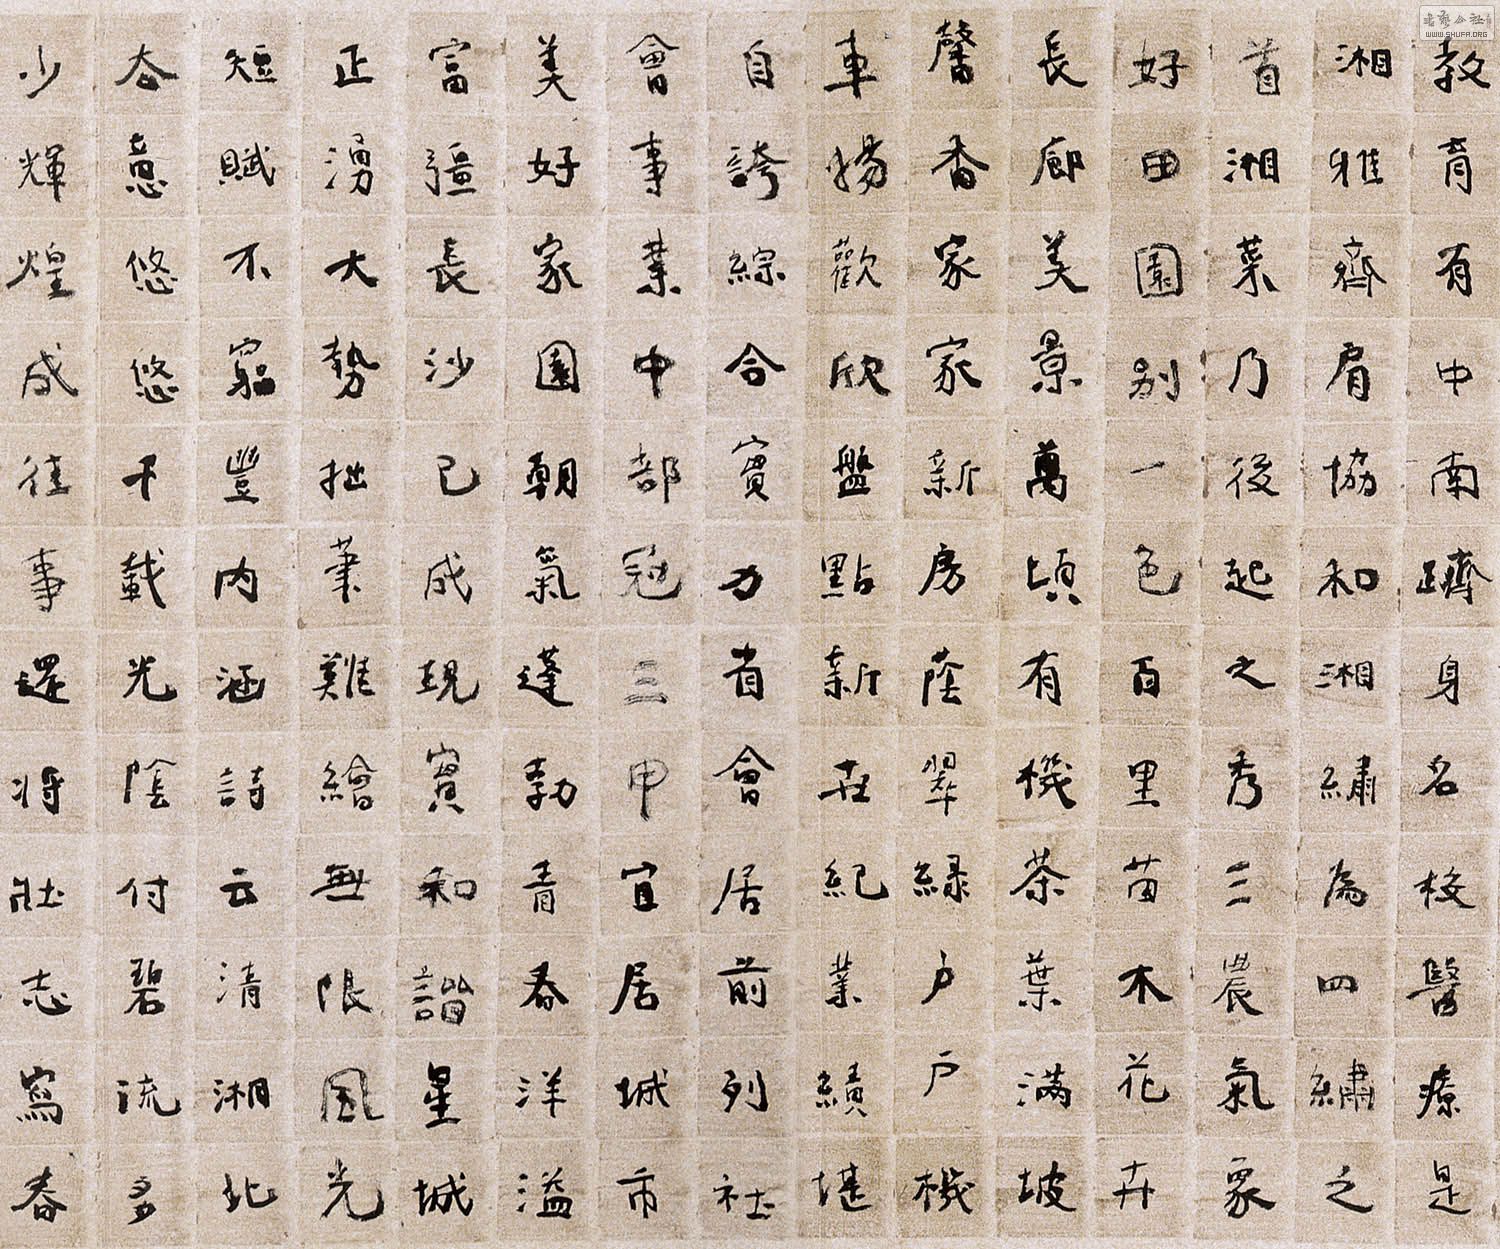 教育有中南躋身名校醫療是
湘雅齊肩協和湘繡為四繡之
首湘菜乃後起之秀三農氣象
好田園别一色百里苗木花卉
長廊美景萬頃有機茶葉滿坡
馨香家家新房蔭翠緑戶戶機
車揚歡欣盤點新世紀業績堪
自誇綜合實力省會居前列社
會事業中部冠三甲宜居城市
美好家園朝氣蓬勃青春洋溢
富彊長沙已成現實和諧星城
正湧大勢拙筆難繪無限風光
短賦不窮豐内涵詩云清湘北
去意悠悠千載光陰付碧流多
少輝煌成往事還将壯志寫春
書藝公社
WWW.SHUFA.ORG